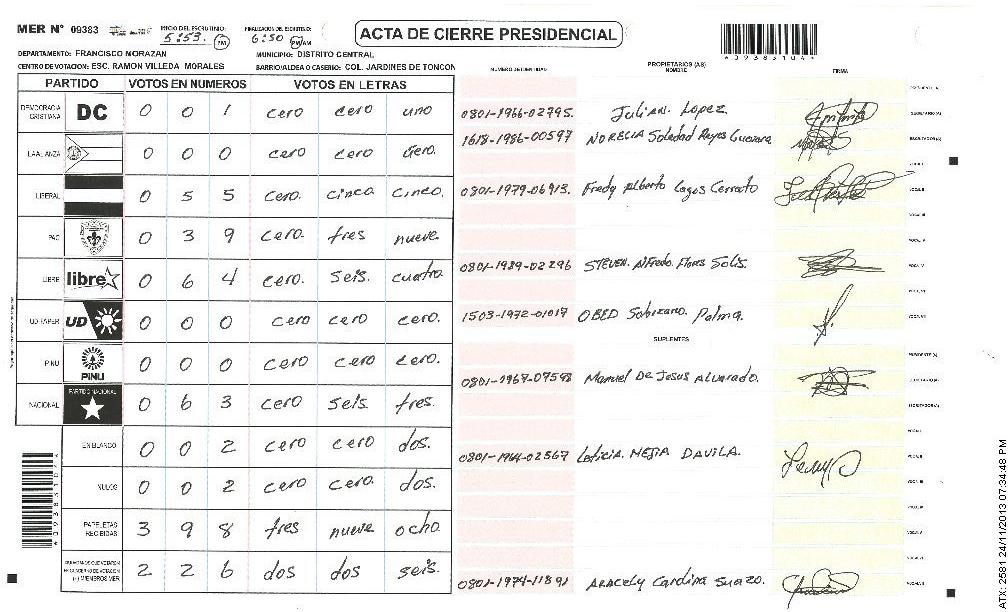 MER Nº 09383 INICIO DEL ESCRUTINIO: 5:53 PM FINALIZACION DEL ESCRUTINIO: 6:50 PM/AM ACTA DE CIERRE PRESIDENCIAL
DEPARTAMENTO: FRANCISCO MORAZAN MUNICIPIO: DISTRITO CENTRAL
CENTRO DE VOTACION: ESC. RAMON VILLEDA MORALES BARRIO/ALDEA O CASERIO: COL. JARDINES DE TONCON
NUMERO DE IDENTIDAD PROPIETARIOS (AS) NOMBRE FIRMA
PARTIDO VOTOS EN NUMEROS VOTOS EN LETRAS
DEMOCRACIA CRISTIANA DC 0 0 1 cero cero uno
LA ALIANZA 0 0 0 cero cero cero.
LIBERAL 0 5 5 cero. cinco cinco.
PAC 0 3 9 cero. tres nueve
LIBRE libre 0 6 4 cero. seis. cuatro
UD FAPER UD 0 0 0 cero cero cero.
PINU PINU 0 0 0 cero cero cero.
NACIONAL PARTIDO NACIONAL 0 6 3 cero seis tres.
EN BLANCO 0 0 2 cero cero dos.
NULOS 0 0 2 cero cero. dos.
PAPELETAS RECIBIDAS 3 9 8 tres nueve ocho
(+) MIEMBROS MER 2 2 6 dos dos seis.
0801-1966-02795. Julian. Lopez.
1618-1986-00597 NORECIA Soledad Reyes Guevara
0801-1979-06913. Fredy Alberto Lagos Cerrato
0801-1989-02296 STEVEN. Alfredo. Flores Solis.
1503-1972-01017 OBED Sobirano. Palma.
SUPLENTES
0801-1967-07598 Manuel De Jesus Alvarado.
0801-1964-02567 Leticia. MEJIA DAVILA.
0801-1974-11891 ARACELY Cardina Suazo.
*09383104*
ATX: 2581 24/11/2013 07:34:48 PM